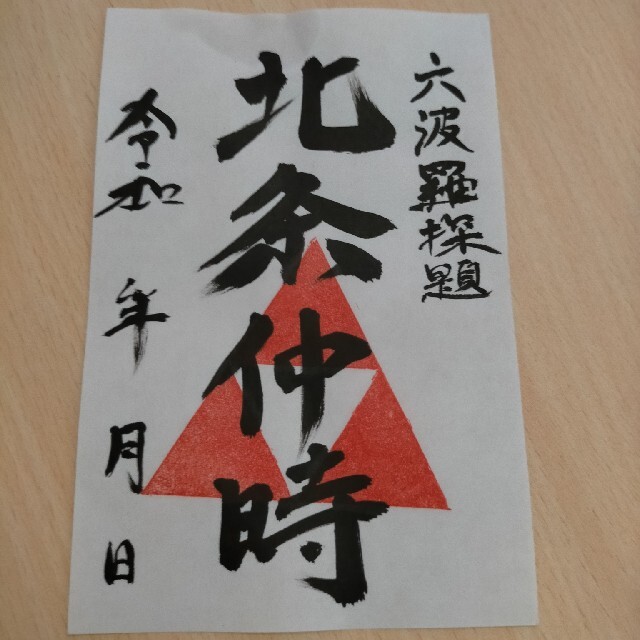 六波羅探題
北条仲時
令和 年 月 日